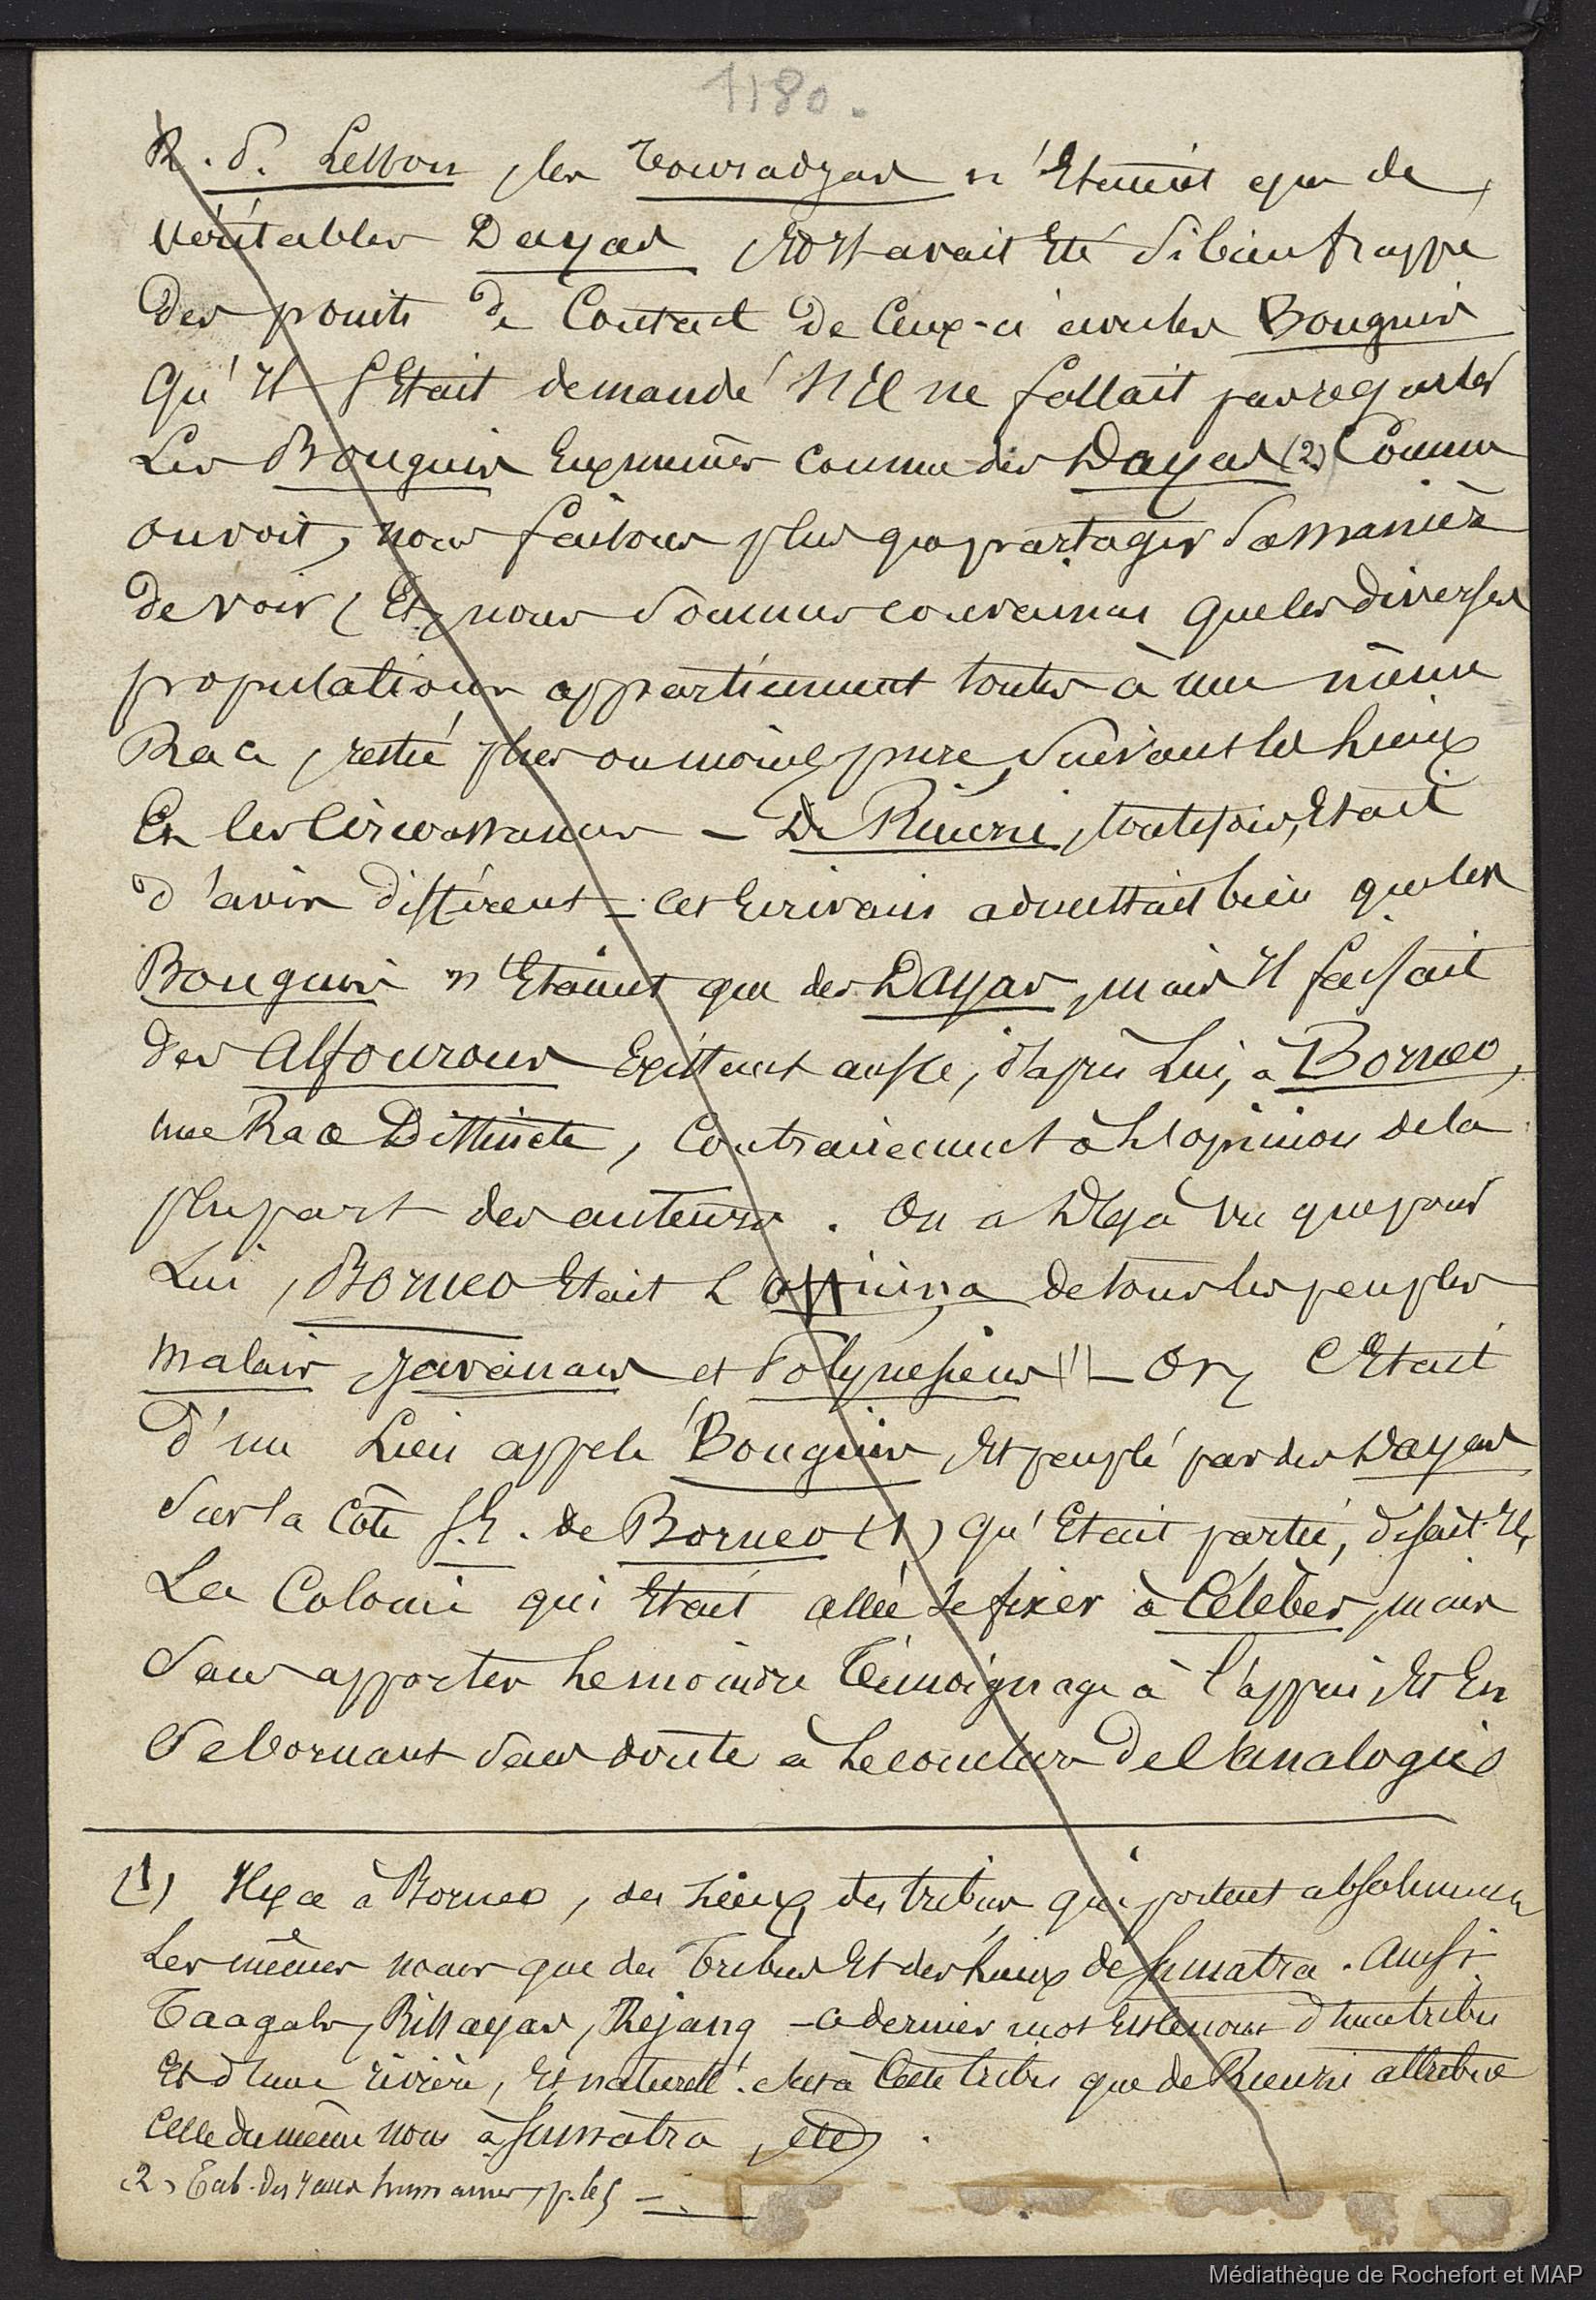 1180.
R. P. Lesson, les Touradjas n'Etaient que de
véritables Dayas, Et Il avait Eté si bien frappé
des points de Contact de Ceux-ci avec les Bouguis
Qu'Il s'Etait demandé s'Il ne fallait pas regarder
Les Bouguis Eux memes comme des Dayas (2) Comme
on voit, nous faisons plus que partager sa manière
de voir, Et nous sommes convaincus que les diverses
populations appartiennent toutes à une même
Race, restée plus ou moins pure, suivant les Lieux
Et les Circonstances — De Rienzi, toutefois, Etait
d'avis différent — Cet Ecrivain admettait bien que les
Bouguis n'Etaient que des Dayas, mais Il faisait
des Alfourous Existant aussi, d'après Lui, à Borneo,
une Race Distincte, Contrairement à L'opinion de la
plupart des auteurs. On a Déjà vu que pour
Lui, Borneo Etait L'officina de tous les peuples
Malais, Javanais et Polynesiens — Or, C'Etait
d'un Lieu appelé Bouguis, Et peuplé par des Dayas
sur la Côte S.E. de Borneo (1) qu'Etait partie, disait-Il,
La Colonie qui Etait allée se fixer à Célèbes, mais
sans apporter Le moindre Témoignage à l'appui, Et En
se bornant sans doute à Le conclure de l'analogie
(1) Il y a à Borneo, des Lieux, des tribus qui portent absolument
Les mêmes noms que des Tribus Et des Lieux de Sumatra. Ainsi
Taagals, Bissayas, Rejang — Ce dernier mot Est Le nom d'une tribu
Et d'une rivière, Et naturellt. c'est à Cette tribu que de Rienzi attribue
Celle du même nom à Sumatra, etc.
(2) Tab. des races humaines, p.